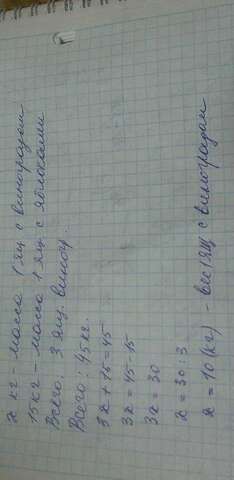 x кг - масса 1 ящ с виноградом
15 кг - масса 1 ящ с яблоками
Всего: 3 ящ. виногр.
Всего: 45 кг.
3x + 15 = 45
3x = 45 - 15
3x = 30
x = 30 : 3
x = 10 (кг) - вес 1 ящ с виноградом